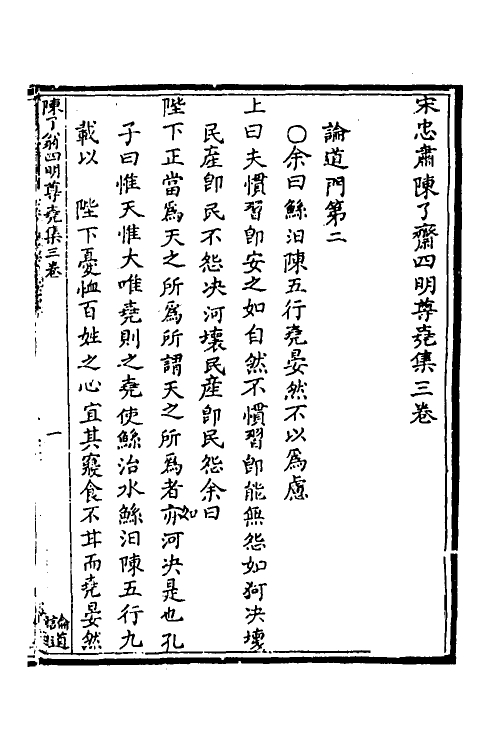 宋忠肅陳了齋四明尊堯集三卷
論道門第二
○余曰鯀汨陳五行堯晏然不以爲慮
上曰夫慣習卽安之如自然不慣習卽能無怨如河决壞
民産卽民不怨决河壞民産卽民怨余曰
陛下正當爲天之所爲所謂天之所爲者如亦河决是也孔
子曰惟天惟大唯堯則之堯使鯀治水鯀汨陳五行九
載以 陛下憂恤百姓之心宜其寢食不甘而堯晏然
陳了翁四明尊堯集三卷
一
論道